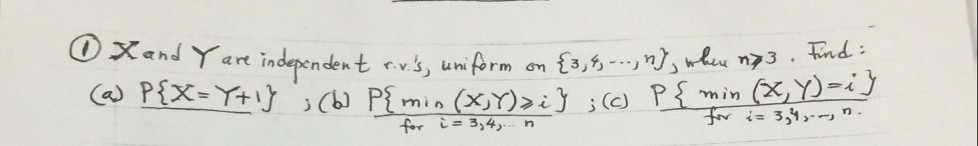 ① X and Y are independent r.v.'s, uniform on {3,4,---,n}, when n≥3. Find:
(a) P{X=Y+1} ; (b) P{min (X,Y)≥i} ; (c) P{ min (X,Y)=i}
for i=3,4,.. n for i=3,4,--, n.